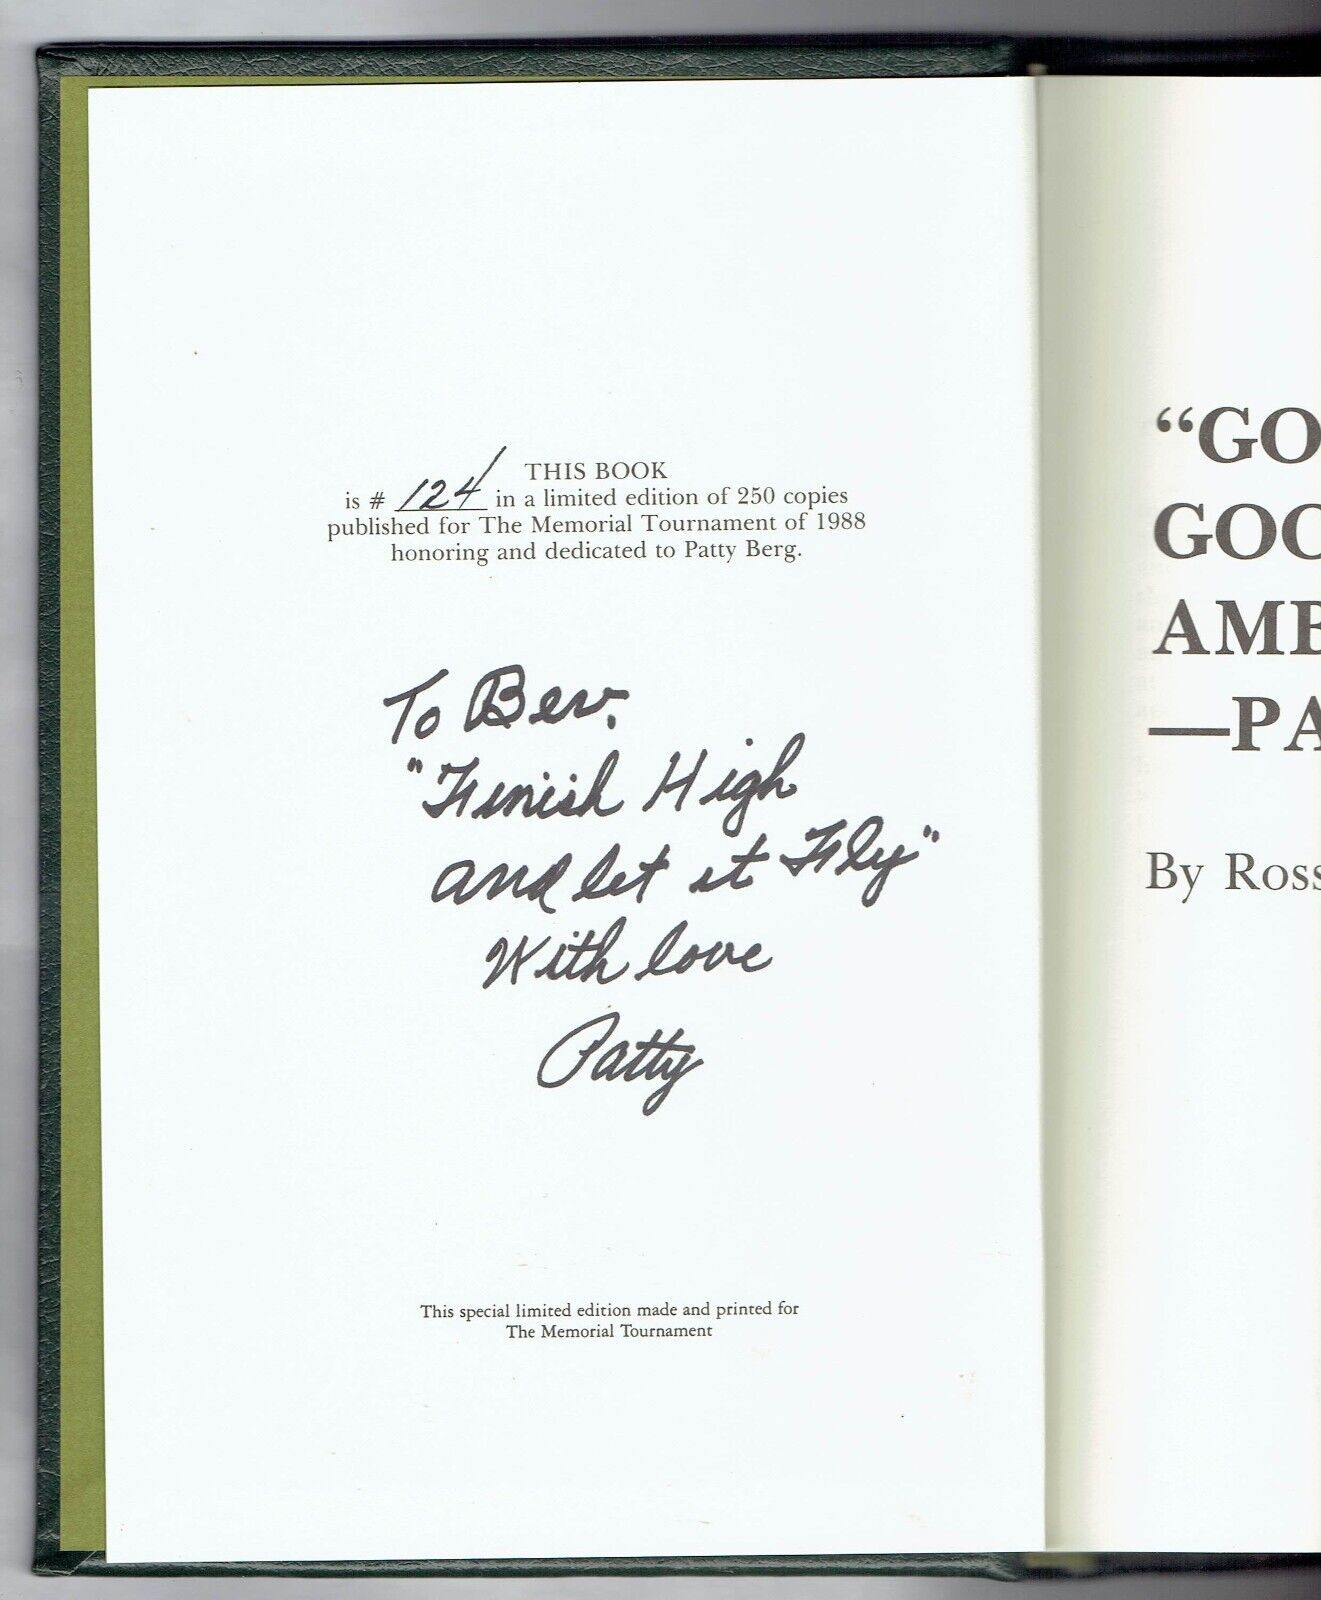 THIS BOOK
is # 124 in a limited edition of 250 copies
published for The Memorial Tournament of 1988
honoring and dedicated to Patty Berg.
To Bev.
"Finish High
and let it Fly"
With love
Patty
This special limited edition made and printed for
The Memorial Tournament
“GO
GOO
AMB
—PA
By Ross